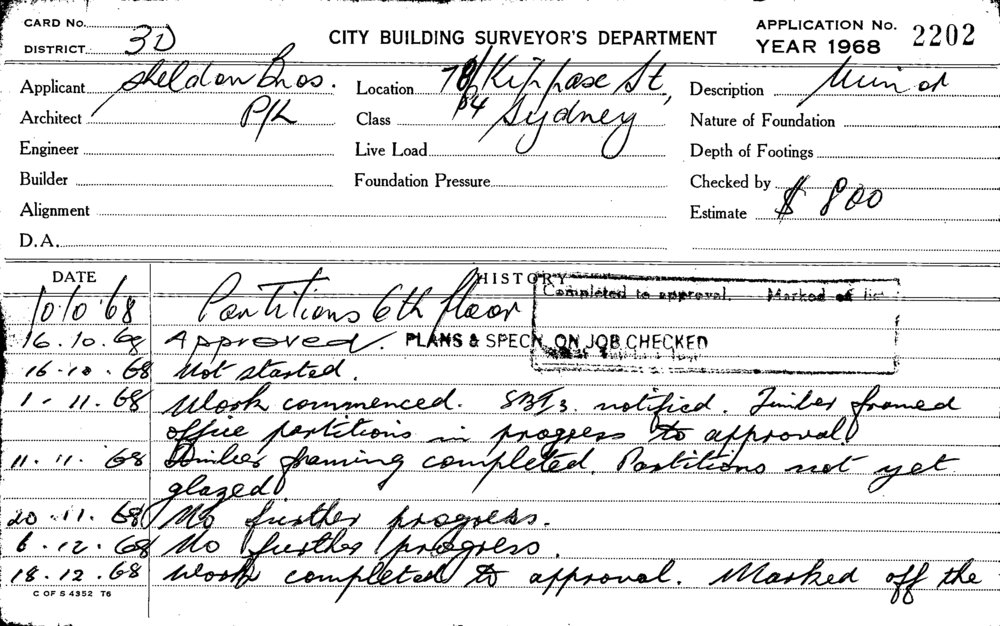 CARD No.
DISTRICT 3D
CITY BUILDING SURVEYOR'S DEPARTMENT
APPLICATION No. 2202
YEAR 1968
Applicant Sheldon Bros.
Location 78/84 Kippax St,
Description Minor
Architect P/L
Class Sydney
Nature of Foundation
Engineer
Live Load
Depth of Footings
Builder
Foundation Pressure
Checked by
Alignment
Estimate $ 800
D.A.
DATE HISTORY
10.10.68 Partitions 6th floor
Completed to approval. Marked off
16.10.68 Approved. PLANS & SPECN. ON JOB CHECKED
16.10.68 Not started.
1.11.68 Work commenced. notified. Timber framed
office partitions in progress to approval
11.11.68 Timber framing completed. Partitions not yet
glazed
20.11.68 No further progress.
6.12.68 No further progress.
18.12.68 Work completed to approval. Marked off the
C OF S 4352 T6